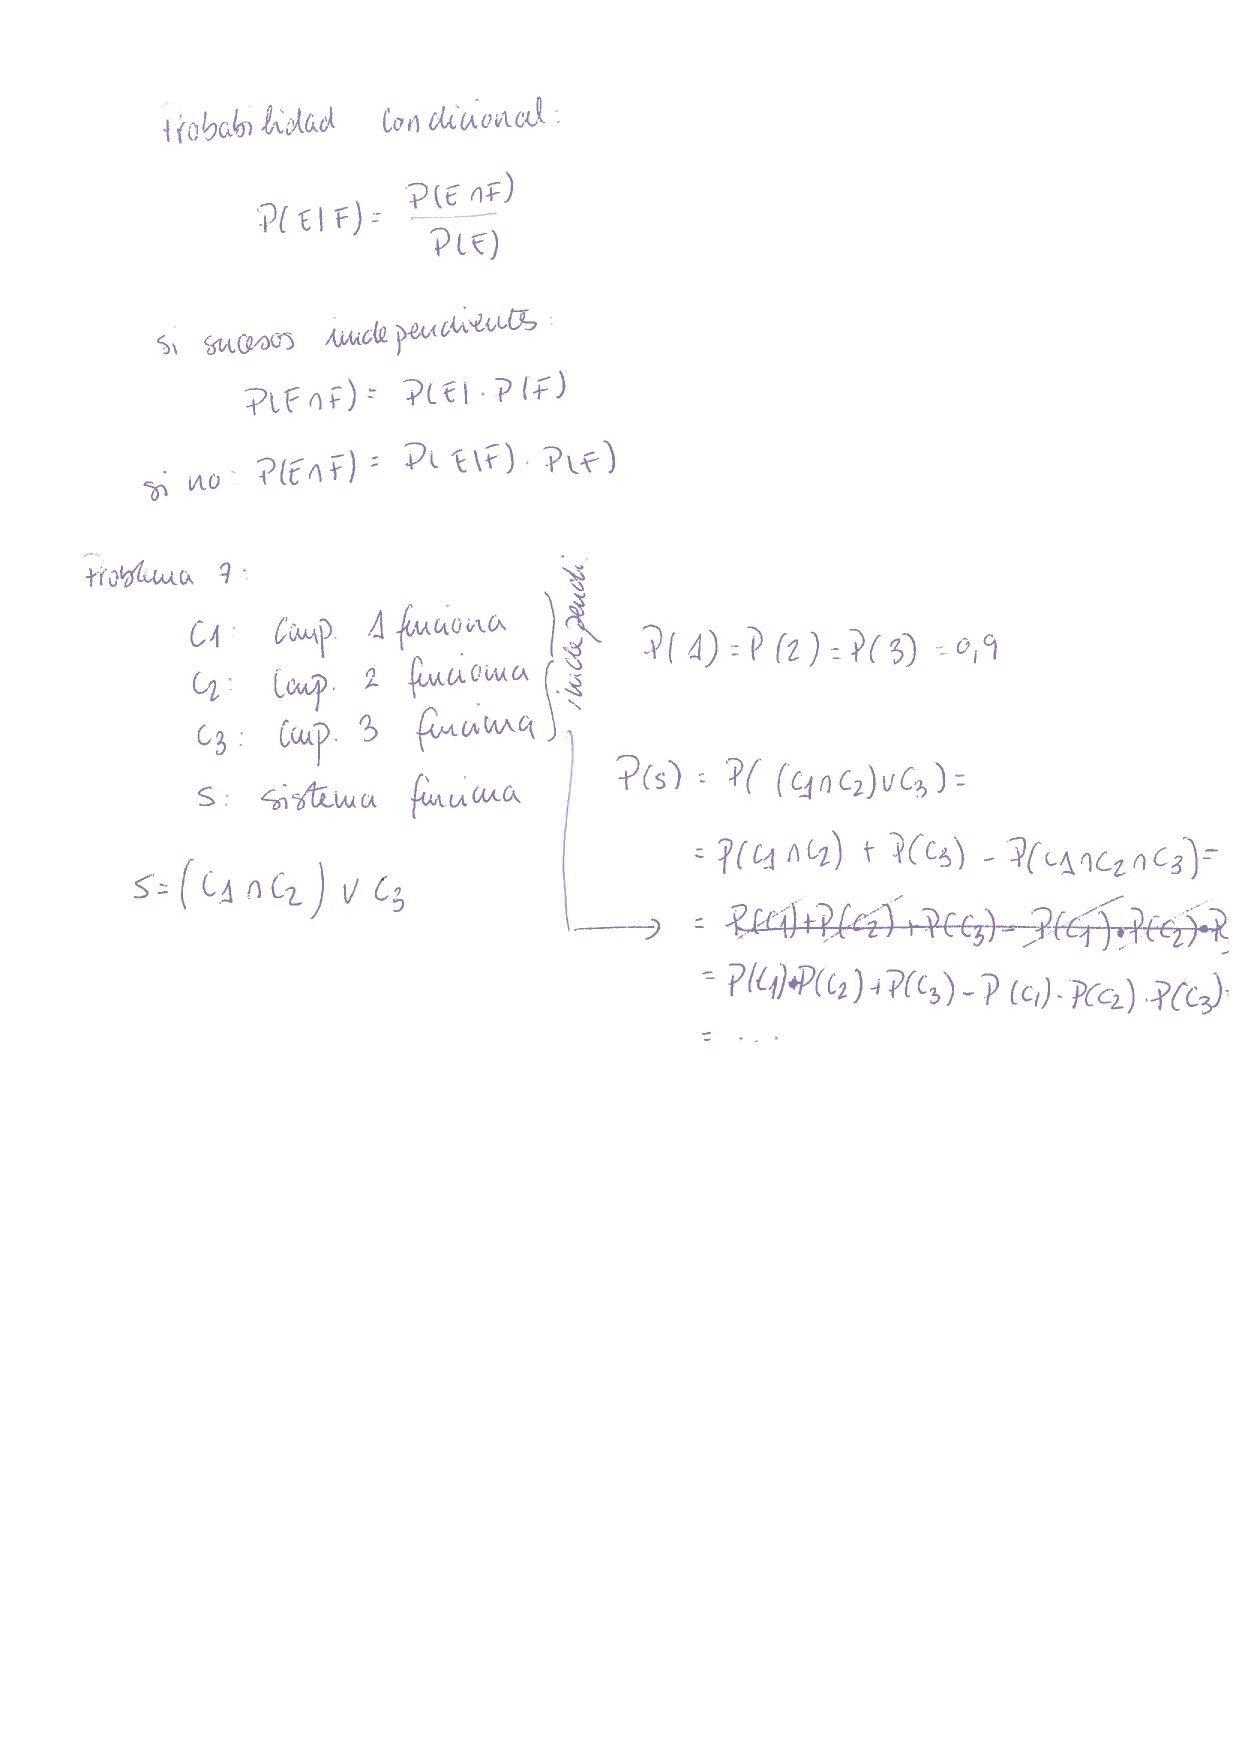 Probabilidad condicional:
P(E|F) = P(E∩F) / P(E)
si sucesos independientes:
P(E∩F) = P(E) · P(F)
si no: P(E∩F) = P(E|F) · P(F)
Problema 7:
C1: Comp. 1 funciona
C2: Comp. 2 funciona
C3: Comp. 3 funciona
S: sistema funciona
S=(C1∩C2) ∪ C3
independi.
P(1) = P(2) = P(3) = 0,9
P(S) = P((C1∩C2)∪C3) =
= P(C1∩C2) + P(C3) - P(C1∩C2∩C3) =
= P(C1)+P(C2)+P(C3) - P(C1)·P(C2)·P
= P(C1)·P(C2)+P(C3) - P(C1)·P(C2)·P(C3)
= ....